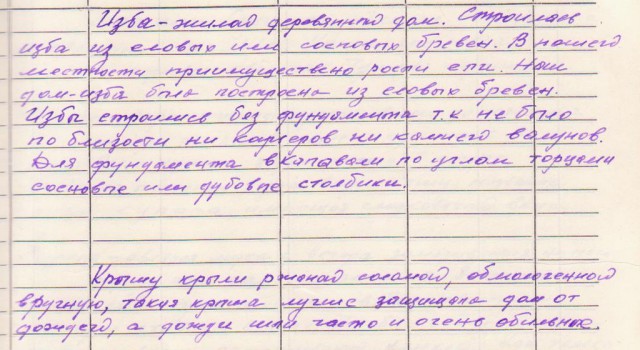 Изба - жилой деревянный дом. Строилась
изба из еловых или сосновых бревен. В нашей
местности приимуществено росли ели. Наш
дом-изба была построена из еловых бревен.
Избы строились без фундамента т.к не было
по близости ни карьеров ни камней валунов.
Для фундамента вкапавали по углам торцами
сосновые или дубовые столбики.
Крышу крыли ржаной соломой, обмолоченной
вручную, такая крыша лучше защищала дом от
дождей, а дожди шли часто и очень обильные.